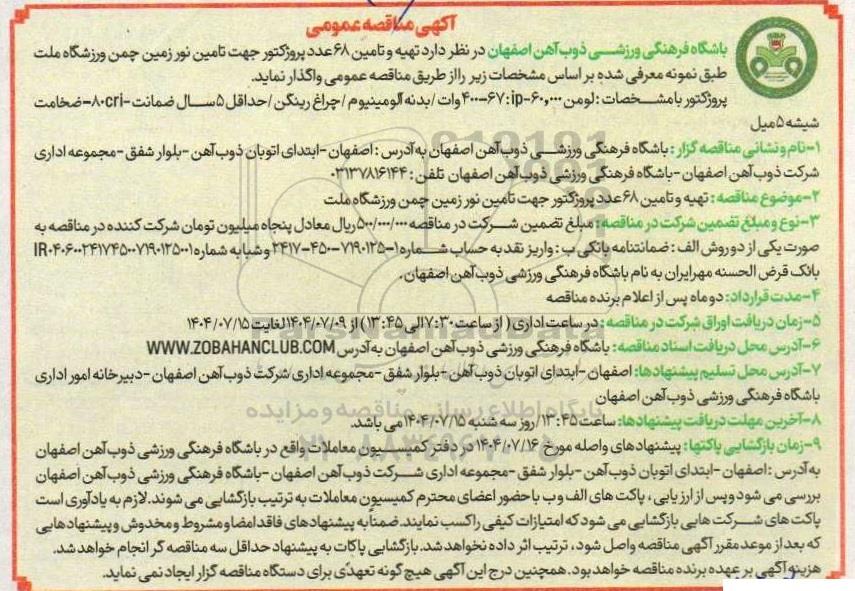 آگهی مناقصه عمومی
باشگاه فرهنگی ورزشی ذوب آهن اصفهان در نظر دارد تهیه و تامین ۶۸ عدد پروژکتور جهت تامین نور زمین چمن ورزشگاه ملت
طبق نمونه معرفی شده بر اساس مشخصات زیر را از طریق مناقصه عمومی واگذار نماید.
پروژکتور با مشخصات : لومن ۶۰,۰۰۰-ip:۶۷-۴۰۰ وات / بدنه آلومینیوم / چراغ رینگن / حداقل ۵ سال ضمانت -۸۰cri- ضخامت
شیشه ۵ میل
۱-نام و نشانی مناقصه گزار : باشگاه فرهنگی ورزشی ذوب آهن اصفهان به آدرس : اصفهان -ابتدای اتوبان ذوب آهن -بلوار شفق -مجموعه اداری
شرکت ذوب آهن اصفهان -باشگاه فرهنگی ورزشی ذوب آهن اصفهان تلفن : ۰۳۱۳۷۸۱۶۱۴۴
۲-موضوع مناقصه : تهیه و تامین ۶۸ عدد پروژکتور جهت تامین نور زمین چمن ورزشگاه ملت
۳-نوع و مبلغ تضمین شرکت در مناقصه : مبلغ تضمین شرکت در مناقصه ۵۰۰/۰۰۰/۰۰۰ ریال معادل پنجاه میلیون تومان شرکت کننده در مناقصه به
صورت یکی از دو روش الف : ضمانتنامه بانکی ب : واریز نقد به حساب شماره ۱-۷۱۹۰۱۲۵-۴۵۰-۲۴۱۷ و شبا به شماره IR۰۴۰۶۰۰۲۴۱۷۴۵۰۰۷۱۹۰۱۲۵۰۰۱
بانک قرض الحسنه مهر ایران به نام باشگاه فرهنگی ورزشی ذوب آهن اصفهان.
۴-مدت قرارداد : دو ماه پس از اعلام برنده مناقصه
۵-زمان دریافت اوراق شرکت در مناقصه : در ساعت اداری ( از ساعت ۷:۳۰ الی ۱۳:۴۵ ) از ۱۴۰۴/۰۷/۰۹ لغایت ۱۴۰۴/۰۷/۱۵
۶-آدرس محل دریافت اسناد مناقصه : باشگاه فرهنگی ورزشی ذوب آهن اصفهان به آدرس WWW.ZOBAHANCLUB.COM
۷-آدرس محل تسلیم پیشنهادها : اصفهان -ابتدای اتوبان ذوب آهن -بلوار شفق -مجموعه اداری شرکت ذوب آهن اصفهان -دبیرخانه امور اداری
باشگاه فرهنگی ورزشی ذوب آهن اصفهان
۸-آخرین مهلت دریافت پیشنهادها : ساعت ۱۳:۴۵ / روز سه شنبه ۱۴۰۴/۰۷/۱۵ می باشد.
۹-زمان بازگشایی پاکتها : پیشنهادهای واصله مورخ ۱۴۰۴/۰۷/۱۶ در دفتر کمیسیون معاملات واقع در باشگاه فرهنگی ورزشی ذوب آهن اصفهان
به آدرس : اصفهان -ابتدای اتوبان ذوب آهن -بلوار شفق -مجموعه اداری شرکت ذوب آهن اصفهان -باشگاه فرهنگی ورزشی ذوب آهن اصفهان
بررسی می شود و پس از ارزیابی ، پاکت های الف و ب با حضور اعضای محترم کمیسیون معاملات به ترتیب بازگشایی می شوند. لازم به یادآوری است
پاکت های شرکت هایی بازگشایی می شود که امتیازات کیفی را کسب نمایند. ضمناً به پیشنهادهای فاقد امضا و مشروط و مخدوش و پیشنهادهایی
که بعد از موعد مقرر آگهی مناقصه واصل شود ، ترتیب اثر داده نخواهد شد. بازگشایی پاکات به پیشنهاد حداقل سه مناقصه گر انجام خواهد شد.
هزینه آگهی بر عهده برنده مناقصه خواهد بود. همچنین درج این آگهی هیچ گونه تعهدی برای دستگاه مناقصه گزار ایجاد نمی نماید.
پایگاه اطلاع رسانی مناقصه و مزایده